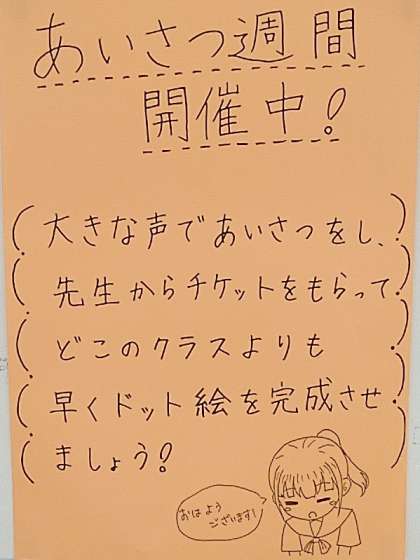 あいさつ週間
開催中!
大きな声であいさつをし、
先生からチケットをもらって
どこのクラスよりも
早くドット絵を完成させ
ましょう!
おはよう
ございます!